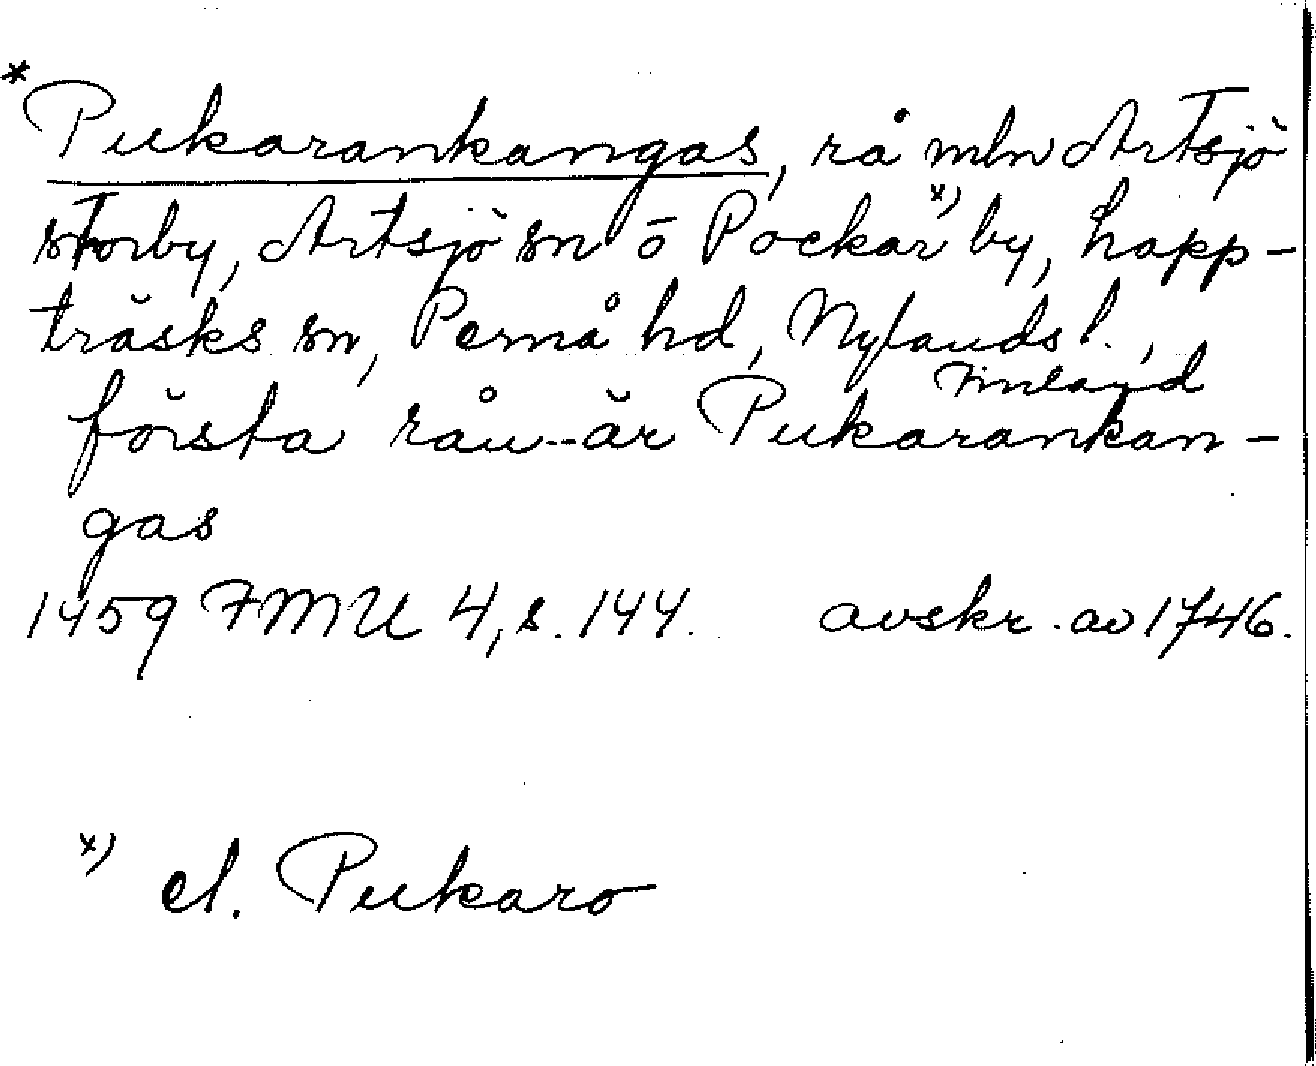 * Pukarankangas, rå mln Artsjö
storby, Artsjö sn o Pockar x) by, Lapp-
träsks sn, Pernå hd, Nylands l.,
Finland
första rån är Pukarankan-
gas
1459 FMU 4, s. 144. avskr. av 1746.
x) el. Pukaro